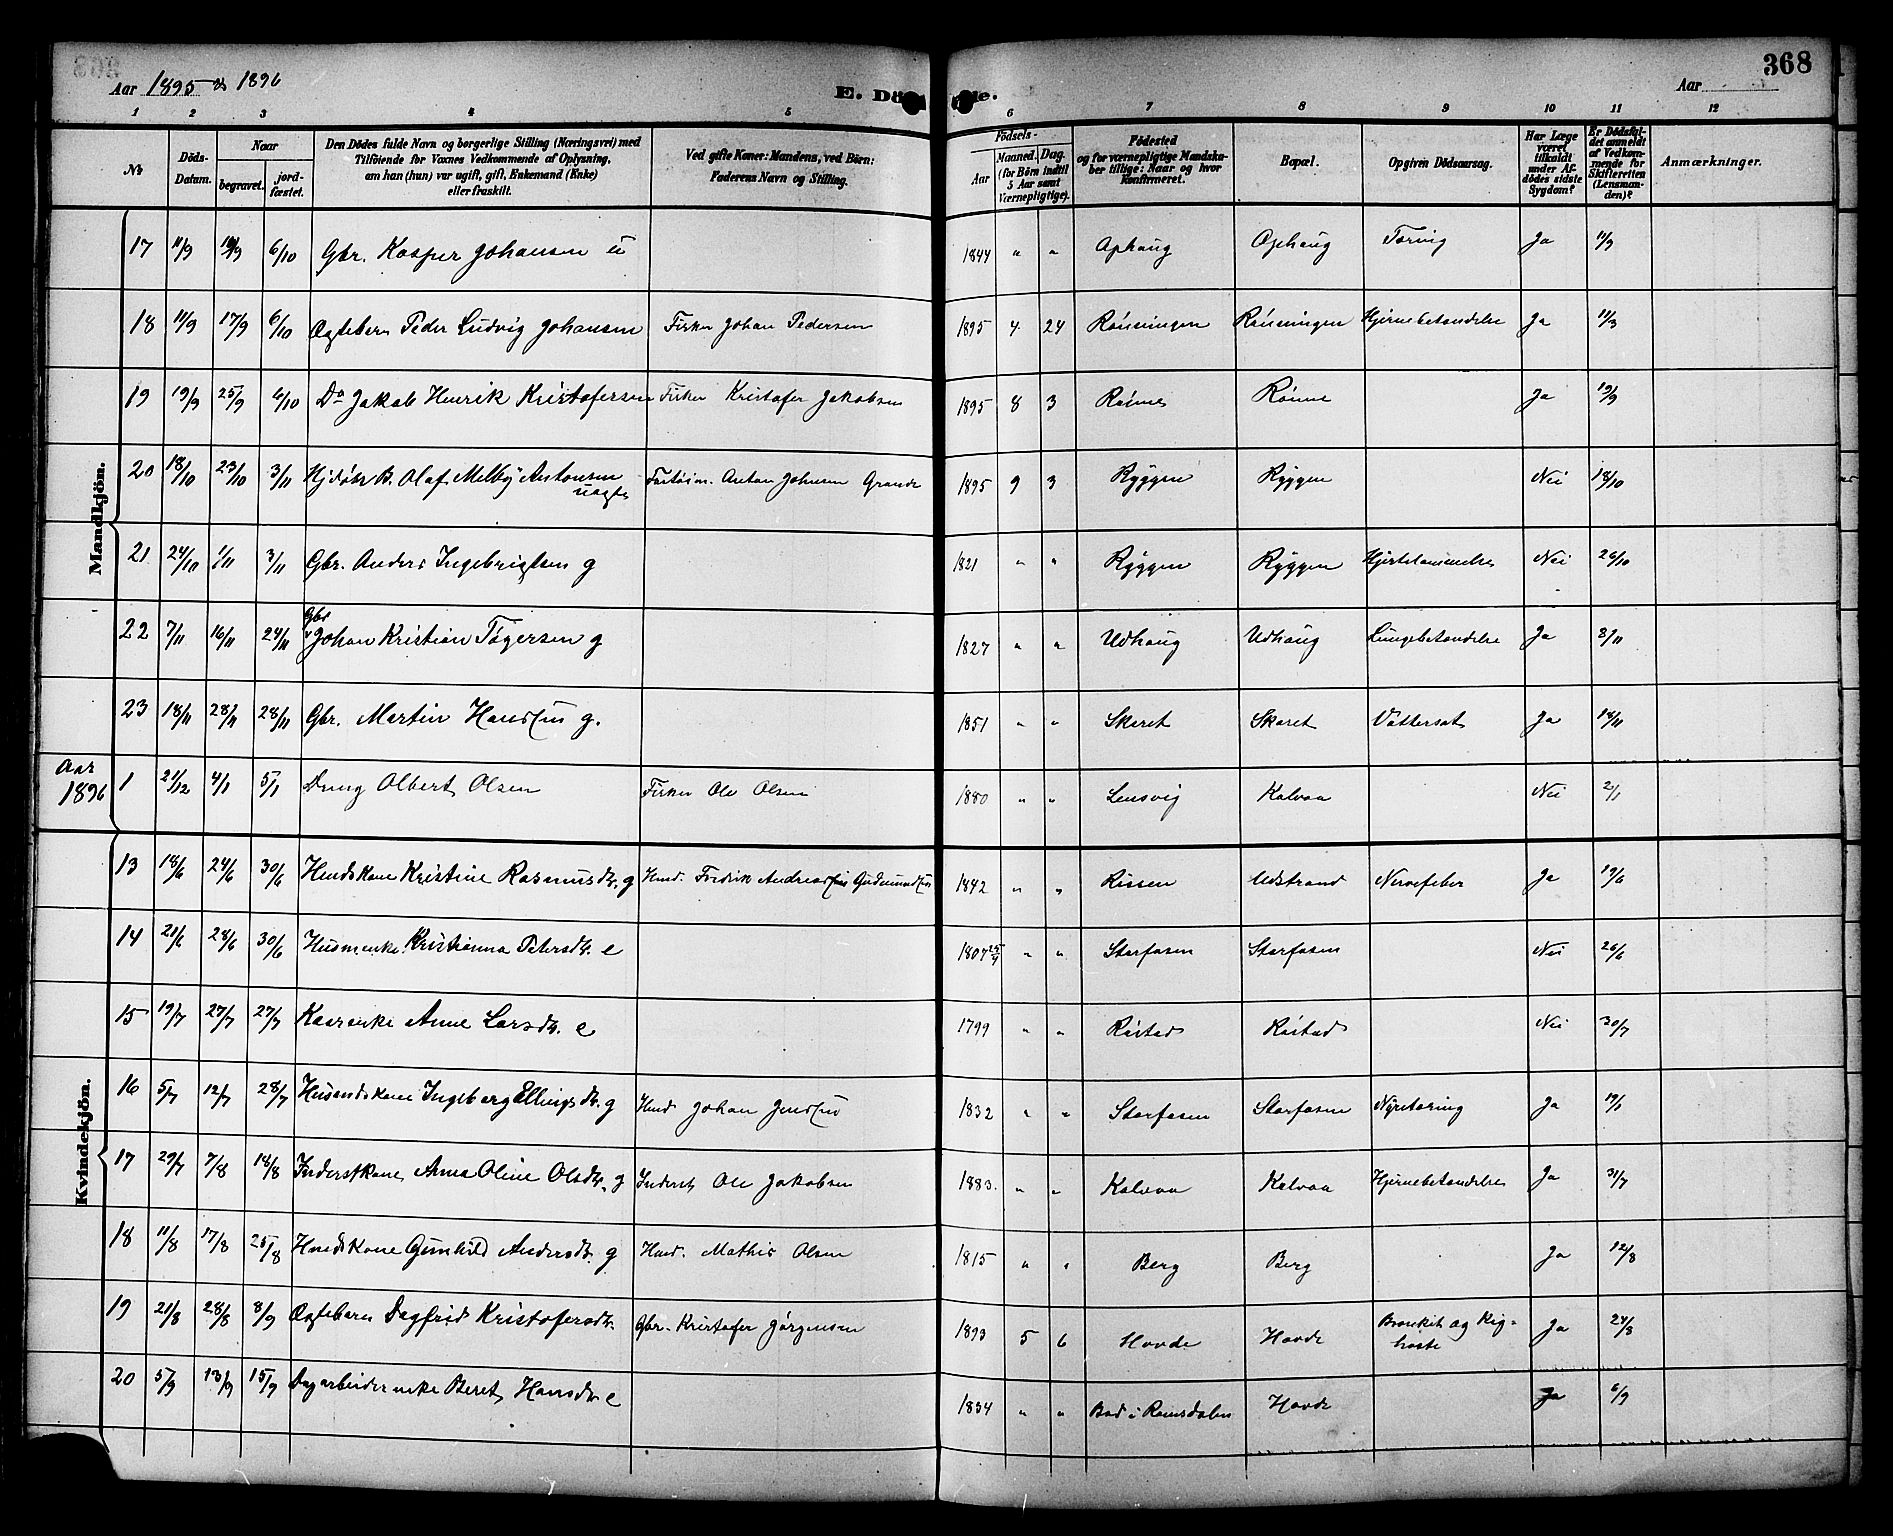 368
Aar 1895 & 1896
E. Döde.
Aar
1 2 3 4 5 6 7 8 9 10 11 12
No
Döds-Datum.
Naar
begravet.
jord-fæstet.
Den Dödes fulde Navn og borgerlige Stilling (Næringsvei) med
Tilföiende for Voxnes Vedkommende af Oplysning,
om han (hun) var ugift, gift, Enkemand (Enke)
eller fraskilt.
Ved gifte Koner: Mandens, ved Börn:
Faderens Navn og Stilling.
Födsels-
Aar
Maaned. Dag.
(for Börn indtil
5 Aar samt
Værnepligtige).
Födested
og for værnepligtige Mandska-
ber tillige: Naar og hvor
Konfirmeret.
Bopæl.
Opgiven Dödsaarsag.
Har Læge
været
tilkaldt
under Af-
dödes sidste
Sygdom?
Er Dödsfal-
det anmeldt
af Vedkom-
mende for
Skifteretten
(Lensman-
den)?
Anmærkninger.
Mandkjön.
17 11/9 19/9 6/10 Gbr. Kasper Johansen u 1844 " " Ophaug Ophaug Tæring Ja 11/9
18 11/9 17/9 6/10 Ægtebarn Peder Ludvig Johansen Fisker Johan Pedersen 1895 4 24 Rönningen Rönningen Hjernebetændelse Ja 11/3
19 19/9 25/9 6/10 Do Jakob Henrik Kristofersen Fisker Kristofer Jakobsen 1895 8 3 Rönne Rönne Ja 19/9
20 18/10 23/10 3/11 Hjdöbt B. Olaf Melby Antonsen uægte Anton Johnsen Grande 1895 9 3 Ryggen Ryggen Nei 18/10
21 24/10 1/11 3/11 Gbr. Anders Ingebrigtsen g 1821 " " Ryggen Ryggen Hjertelammelse Nei 26/10
22 7/11 16/11 24/11 Gbr Johan Kristian Tögersen g 1827 " " Udhaug Udhaug Lungebetændelse Ja 8/11
23 18/11 28/11 28/11 Gbr. Martin Hansen g. 1851 " " Skaret Skaret Vattersot Ja 18/11
Aar
1896 1 21/12 4/1 5/1 Dreng Olbert Olsen Fisker Ole Olsen 1880 " " Lensvig Kalvaa Nei 2/1
Kvindekjön.
13 18/6 24/6 30/6 Hmdskone Kristine Rasmusdtr. g Hmd. Fredrik Andreassen Gudmundsen 1842 " " Rissen Udstrand Nervefeber Ja 19/6
14 21/6 28/6 30/6 Husmenke Kristianna Petersdtr. e 1807 25/4 " " Storfosen Storfosen Nei 26/6
15 19/7 27/7 27/7 Kaarenke Anne Larsdtr. e 1799 " " Röstad Röstad Nei 30/7
16 5/7 12/7 28/7 Husmdskone Ingeborg Ellingsdtr. g Hmd Johan Jenssen 1832 " " Storfosen Storfosen Nyretæring Ja 19/1
17 29/7 7/8 18/8 Inderstkone Anna Oline Olsdtr. g Inderst Ole Jakobsen 1883. " " Kalvaa Kalvaa Hjernebetændelse Ja 31/7
18 11/8 17/8 25/8 Hmdskone Gunhild Andersdtr. g Hmd. Mathis Olsen 1815 " " Berg Berg Ja 12/8
19 21/8 28/8 8/9 Ægtebarn Dagfrid Kristofersdtr. Gbr. Kristofer Jörgensen 1893 5 6 Hovde Hovde Bronkit og Kig-
hoste Ja 24/8
20 5/9 13/9 15/9 Dagarbeiderenke Beret Hansdtr e 1834 " " Bod i Romsdalen Hovde Ja 6/9